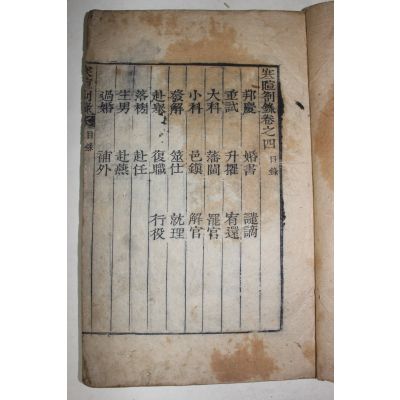 寒暄劄錄卷之四 目錄
邦慶 婚書 譴謫
重試 升擢 宥還
大科 藩閫 罷官
小科 邑鎭 解官
發解 筮仕 就理
赴擧 復職 行役
落榜 赴任
生男 赴燕
過婚 補外
目錄